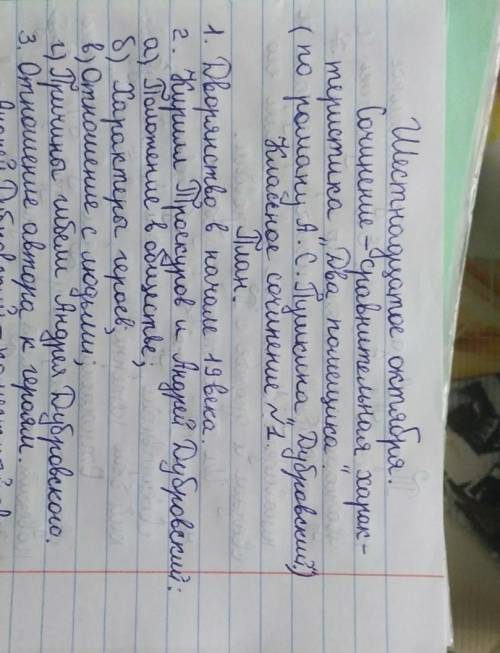 Шестнадцатое октября.
Сочинение - сравнительная харак-
теристика „Два помещика"
(по роману А. С. Пушкина „Дубровский")
Классное сочинение №1.
План.
1. Дворянство в начале 19 века.
2. Кирилл Троекуров и Андрей Дубровский:
а) Положение в обществе;
б) Характера героев;
в) Отношение с людьми;
г) Причины гибели Андрея Дубровского.
3. Отношение автора к героям.
Дубровский